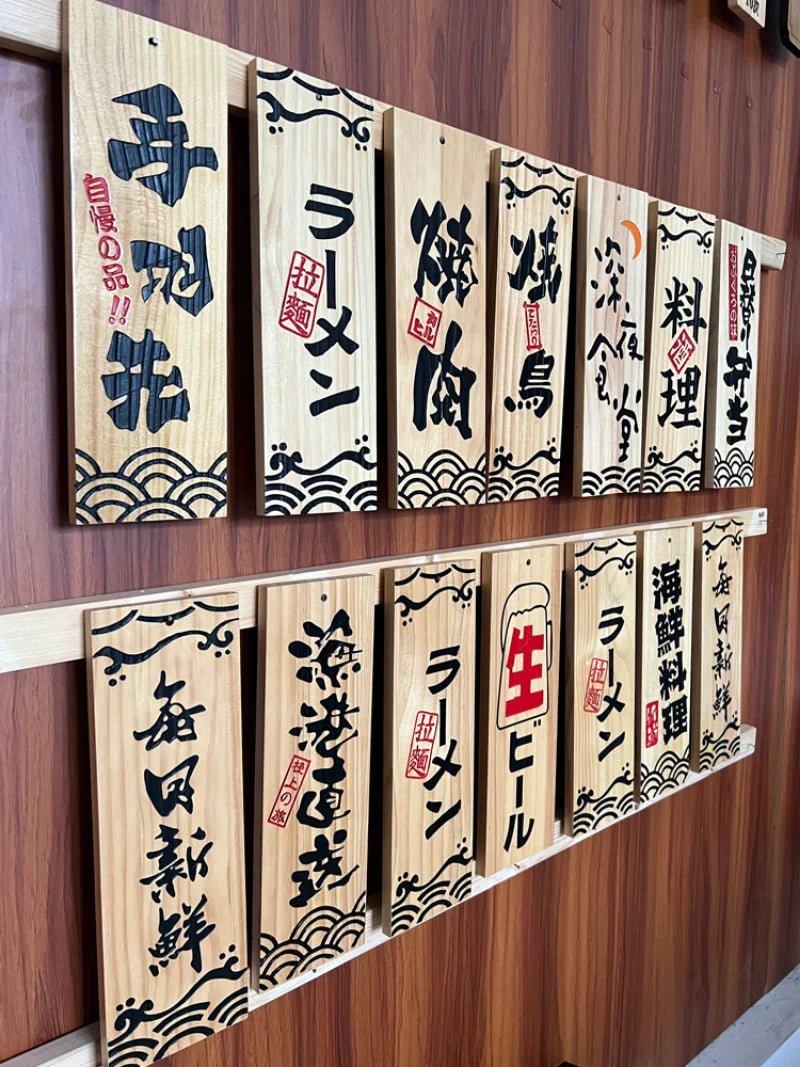 手羽先
自慢の品!!
ラーメン
拉麺
焼肉
焼鳥
深夜食堂
料理
日替り弁当
おふくろの味
毎日新鮮
漁港直送
極上の旅
ラーメン
拉麺
生ビール
ラーメン
拉麺
海鮮料理
毎日新鮮